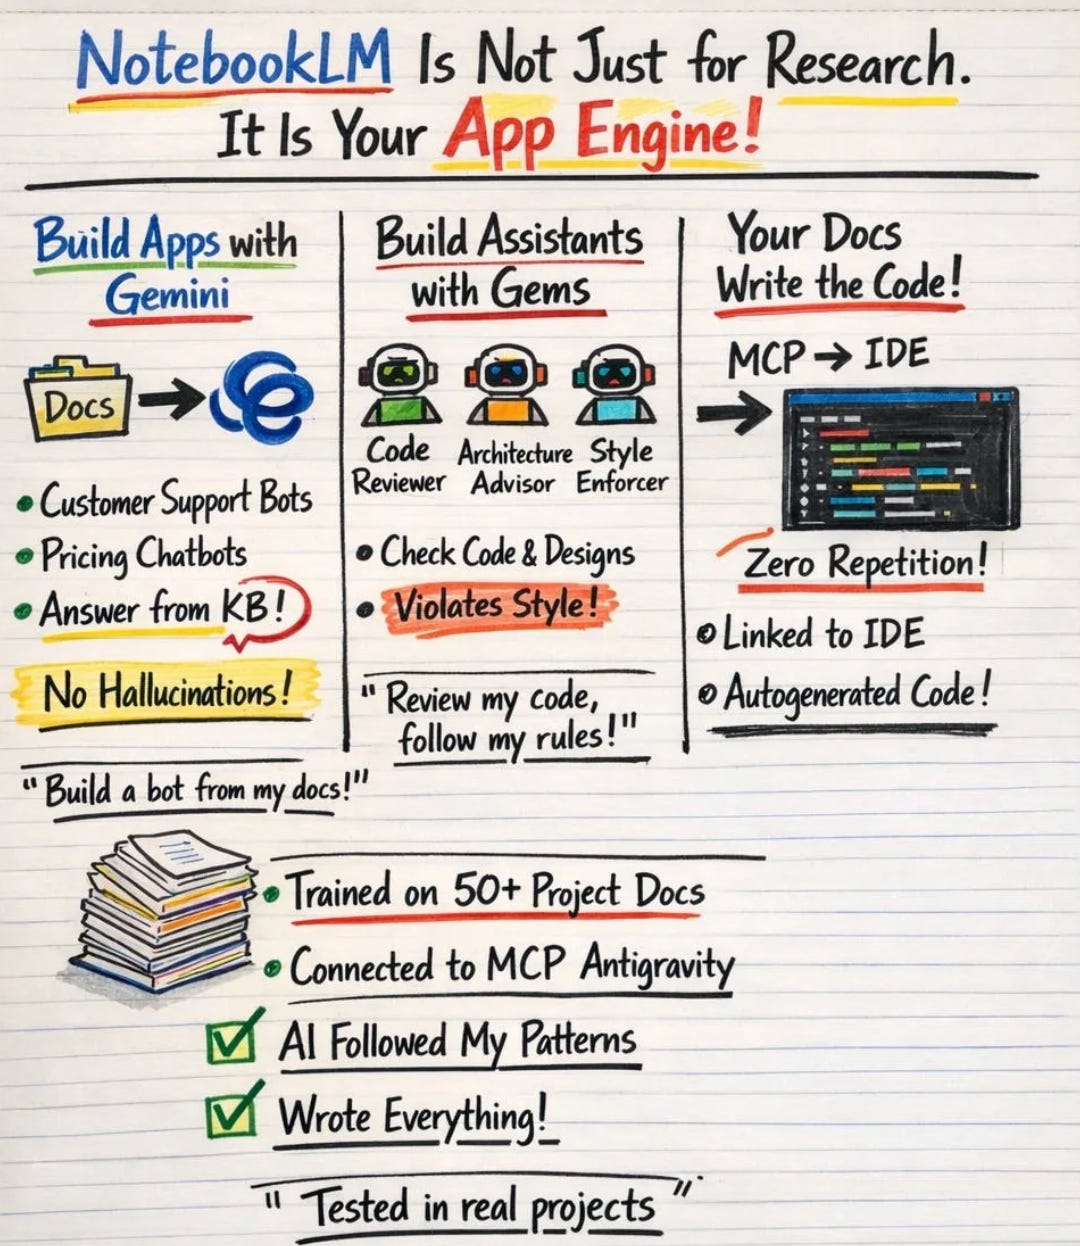 NotebookLM Is Not Just for Research.
It Is Your App Engine!
Build Apps with
Gemini
Docs
• Customer Support Bots
• Pricing Chatbots
• Answer from KB!
No Hallucinations!
"Build a bot from my docs!"
Build Assistants
with Gems
Code
Reviewer
Architecture
Advisor
Style
Enforcer
• Check Code & Designs
• Violates Style!
"Review my code,
follow my rules!"
Your Docs
Write the Code!
MCP → IDE
Zero Repetition!
Linked to IDE
Autogenerated Code!
• Trained on 50+ Project Docs
• Connected to MCP Antigravity
AI Followed My Patterns
Wrote Everything!
"Tested in real projects"